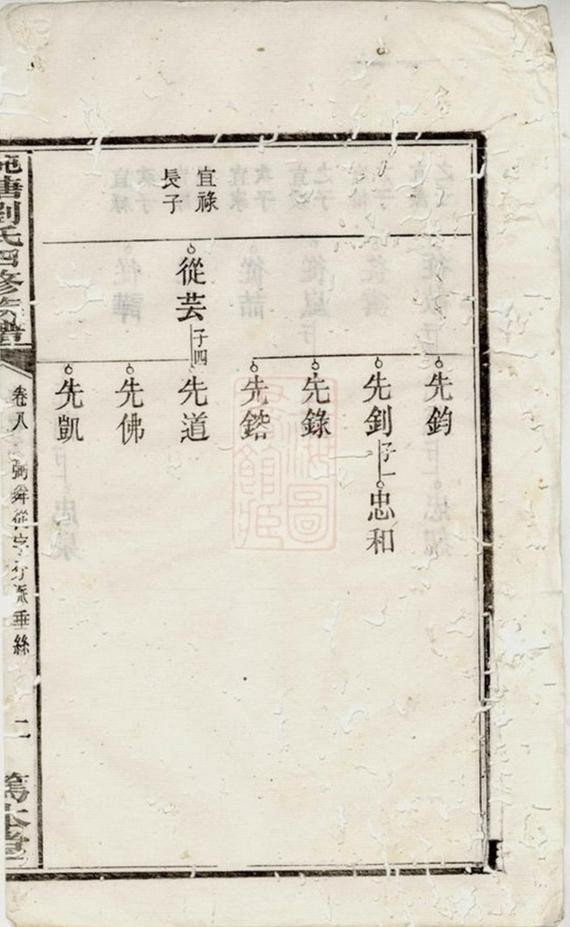 先鈞
先釗子一
忠和
先錄
先鎔
宜祿
長子
從芸子四
先道
先佛
先凱
劉氏四修族譜
卷八
從字分派垂絲
二